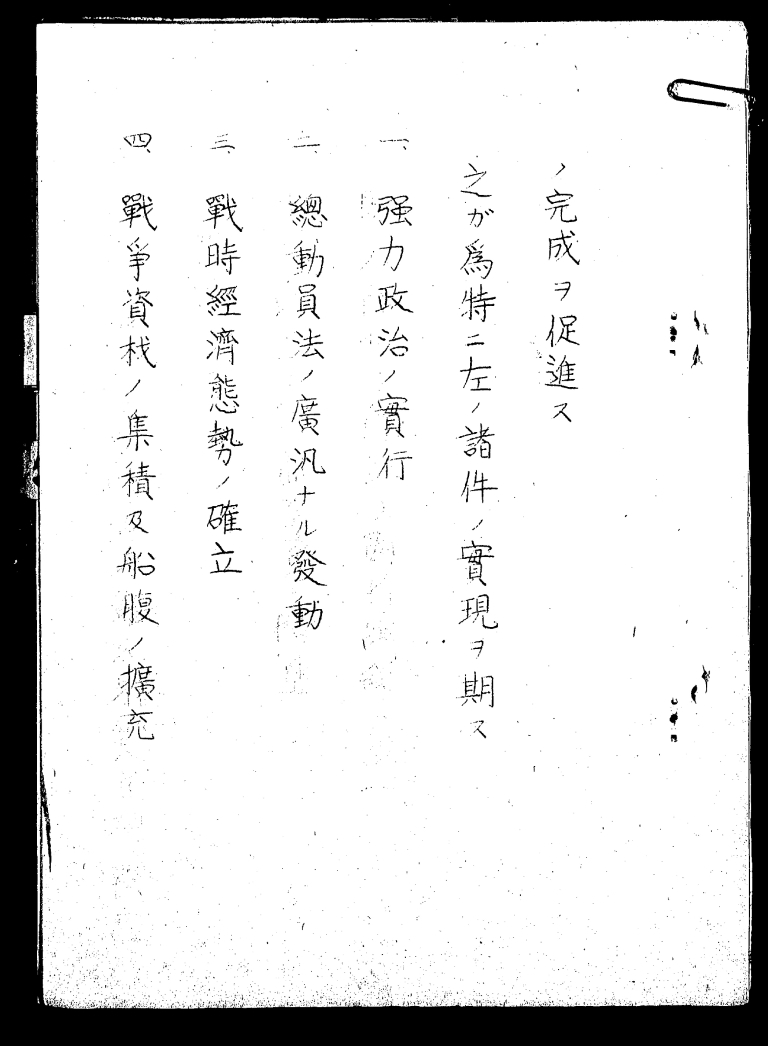 ノ完成ヲ促進ス
之が爲特ニ左ノ諸件ノ實現ヲ期ス
一、强力政治ノ實行
二、總動員法ノ廣汎ナル發動
三、戰時經濟態勢ノ確立
四、戰爭資材ノ集積及船腹ノ擴充